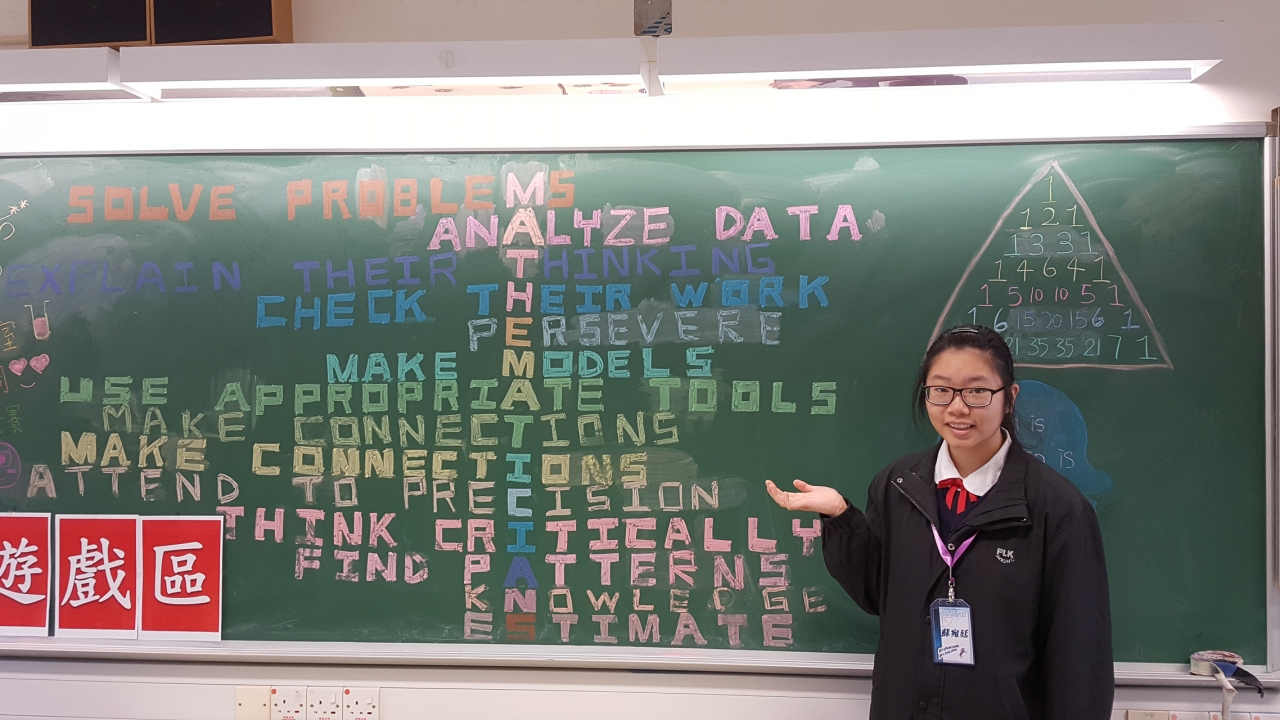 SOLVE PROBLEMS
ANALYZE DATA
EXPLAIN THEIR THINKING
CHECK THEIR WORK
PERSEVERE
MAKE MODELS
USE APPROPRIATE TOOLS
MAKE CONNECTIONS
MAKE CONNECTIONS
ATTEND TO PRECISION
THINK CRITICALLY
FIND PATTERNS
KNOWLEDGE
ESTIMATE
遊戲區
1
1 2 1
1 3 3 1
1 4 6 4 1
1 5 10 10 5 1
1 6 15 20 15 6 1
21 35 35 21 7 1
is
is
PLK